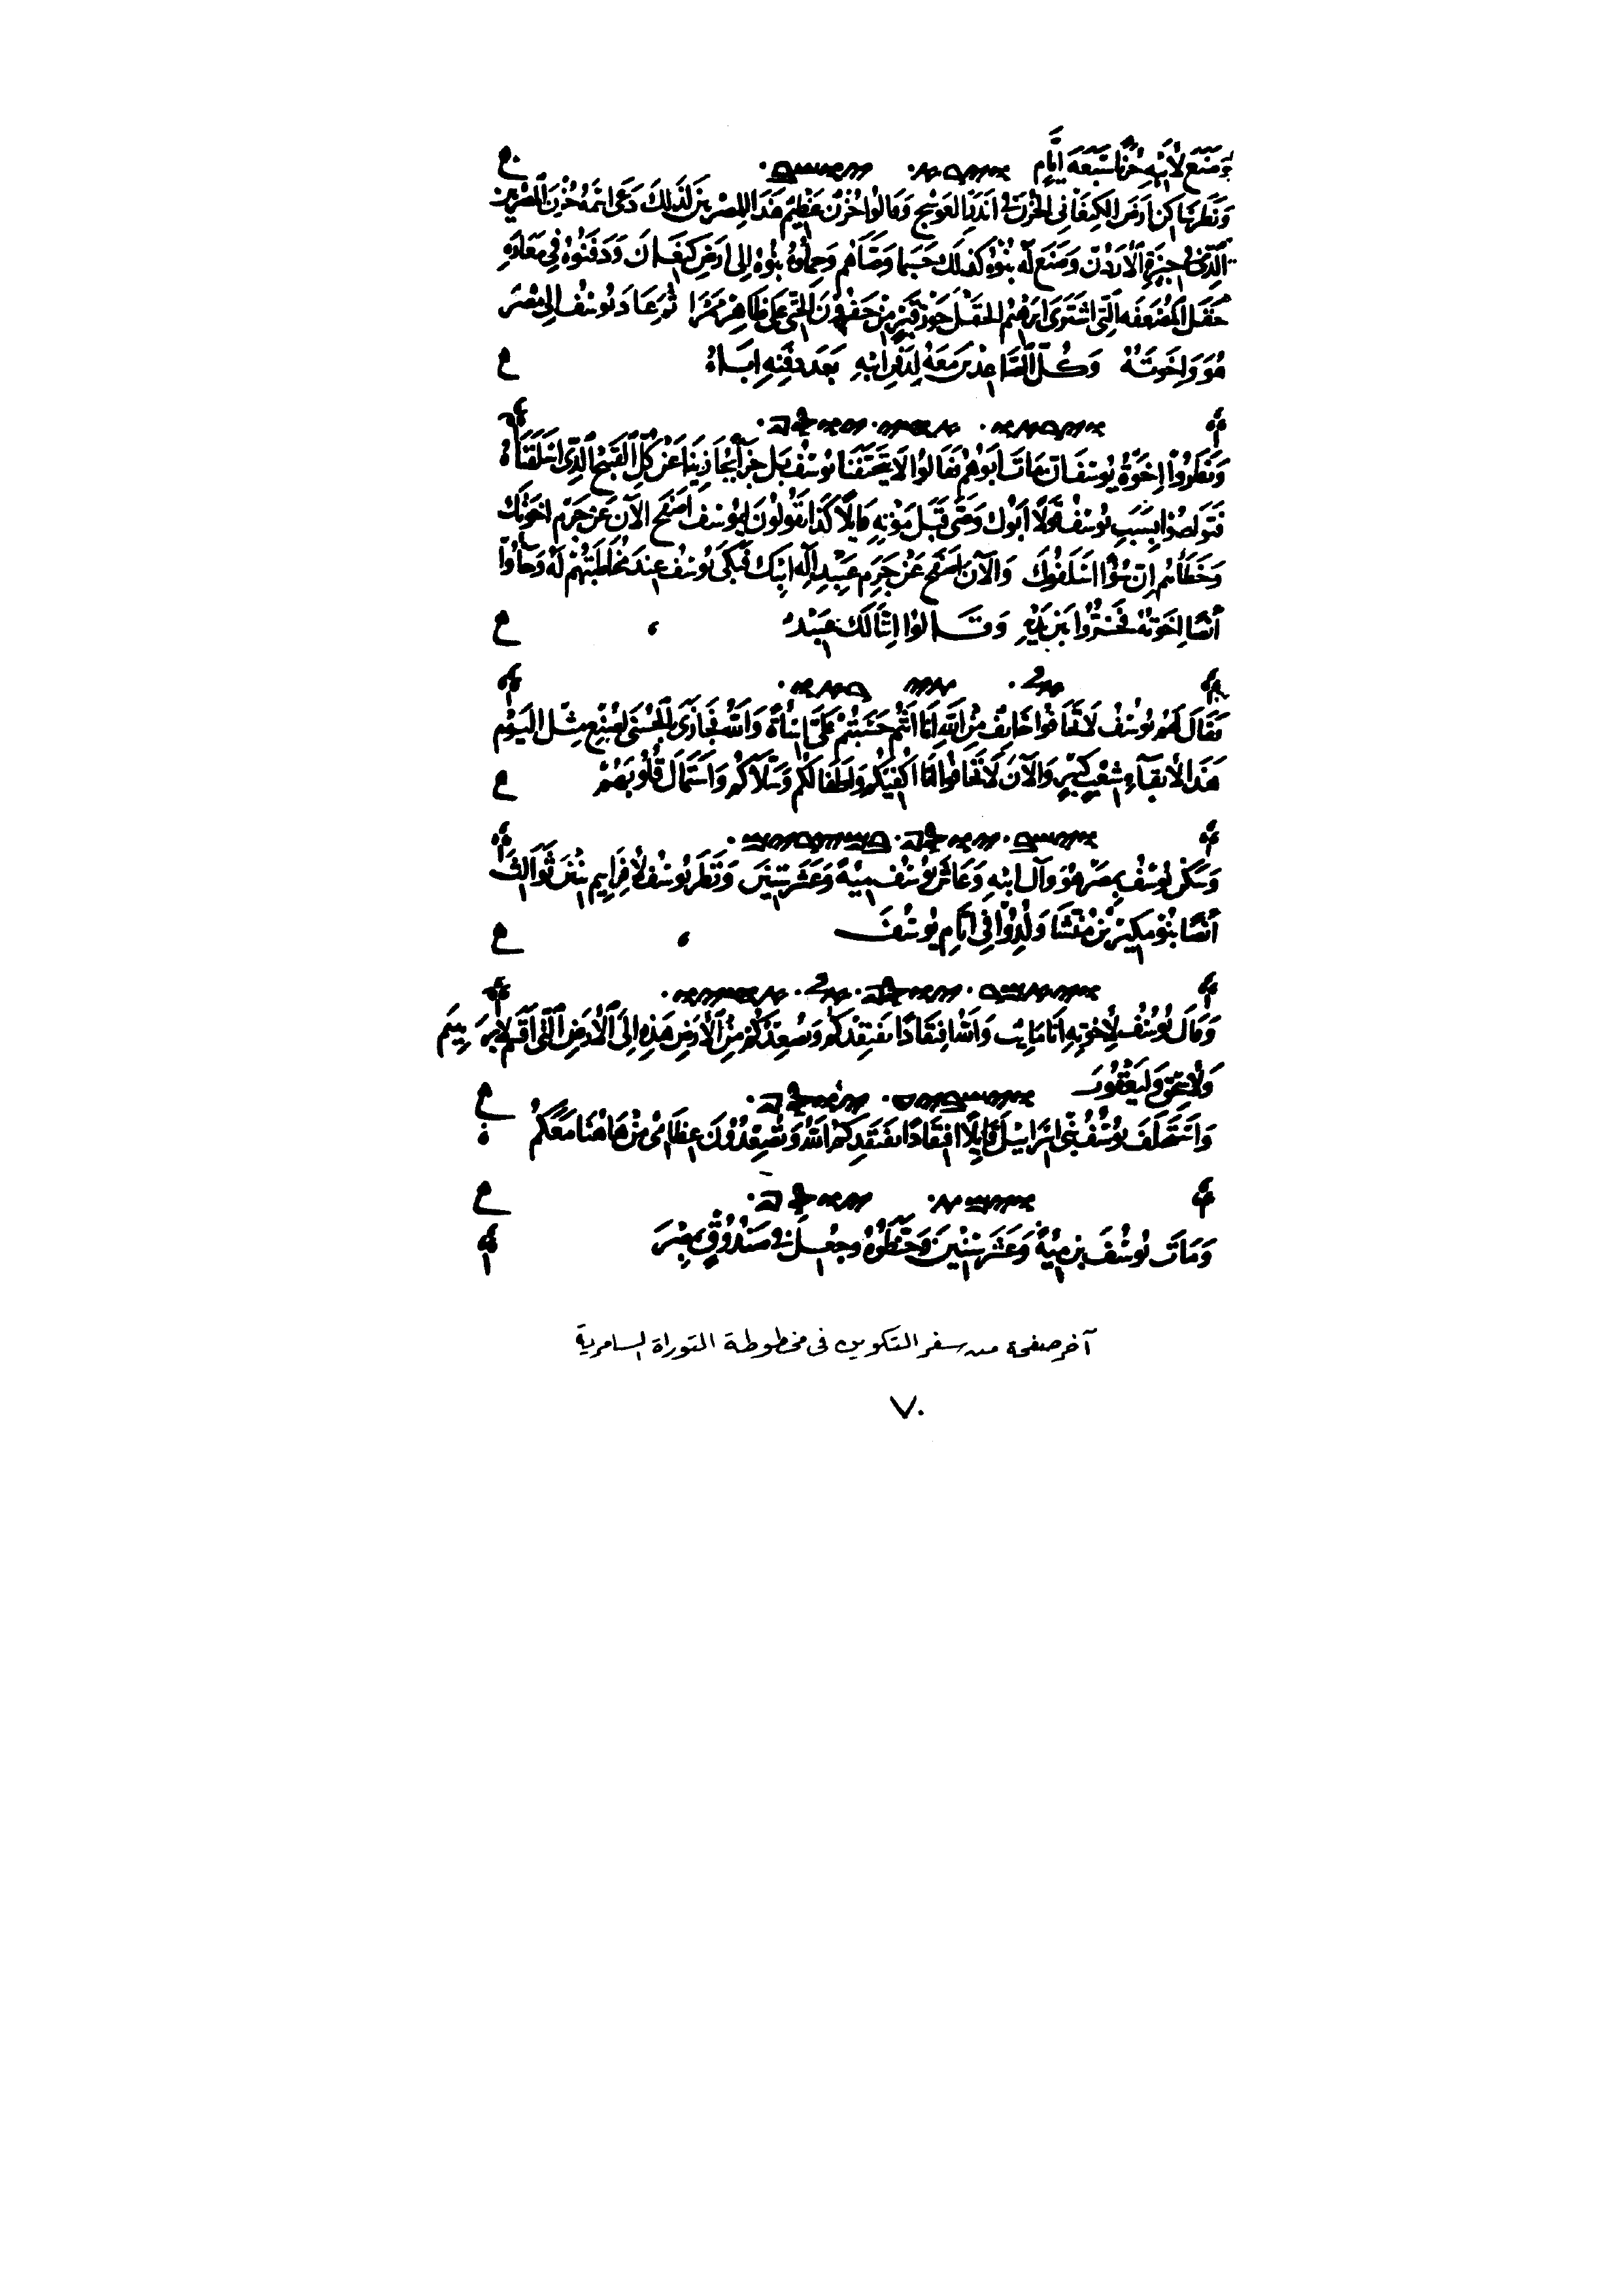 وصنع لأبيه حزنا سبعة أيام
ونظر ساكن أرض الكنعاني الحزن في أندر العوسج وقالوا حزن عظيم هذا للمصريين لذلك دعى اسمه حزن المصريين
الذي في جيزة الأردن وصنع له بنوه كذلك حسبما وصاهم وحملوه بنوه إلى أرض كنعان ودفنوه في مغارة
حقل المضعفة التي اشترى ابرهيم الحقل حوز قبر من عفرون الحتي على ظاهر ممرا ثم عاد يوسف إلى مصر
هو وإخوته وكل الصاعدين معه لدفن ابيه بعد دفنه اباه
ونظروا إخوة يوسف ان مات أبوهم فقالوا لا يحنقنا يوسف بل جزا يجازينا عن كل القبيح الذي اسلفناه
فتواصوا بسبب يوسف قولا أبوك وصى قبل موته قايلا كذا تقولون ليوسف اصفح الآن عن جرم اخوتك
وخطأهم إن سؤا اسلفوك والآن اصفح عن جرم عبيد إله ابيك فبكى يوسف عند مخاطبتهم له وجاؤا
أيضا إخوته فخروا بين يديه وقالوا إنا لك عبيد
فقال لهم يوسف لا تخافوا خايف من الله أنا انتم حسبتم علي اساة والله يجازى بالحسنى لصنع مثل اليوم
هذا لأبقآء شعب كبير والآن لا تخافوا انا اكفيكم واطفالكم وسلاهم واستمال قلوبهم
وسكن يوسف بمصر هو وآل ابيه وعاش يوسف مية وعشر سنين ونظر يوسف لأفرايم بنين ثوالث
أيضا بنو مكير بن منشا ولدوا في أيام يوسف
وقال يوسف لأخوته انا مايت والله افتقادا يفتقدكم ويصعدكم من الأرض هذه إلى الأرض التي أقسم لابرهيم
ولاسحق وليعقوب
واستحلف يوسف بني اسراييل قايلا افتقادا يفتقدكم الله وتصعدون عظامي من هاهنا معكم
ومات يوسف بن مية وعشر سنين وحنطوه وجعل في صندوق بمصر
آخر صفحة من سفر التكوين فى مخطوطة التوراة السامرية
٧٠